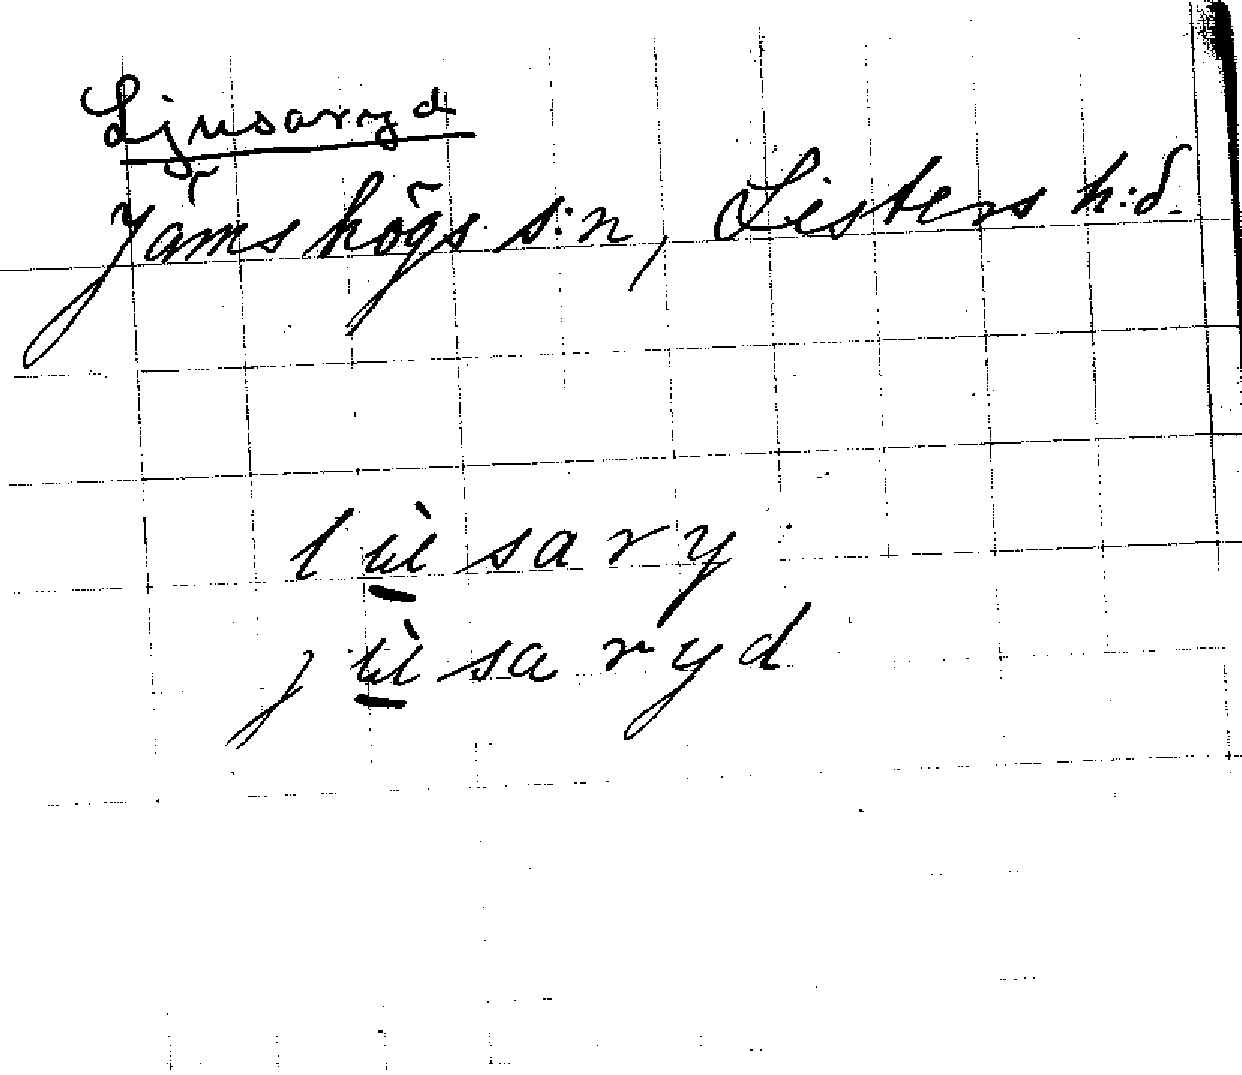 Ljusaryd
Jämshögs s:n, Listers h:d.
lùsary
jùsaryd